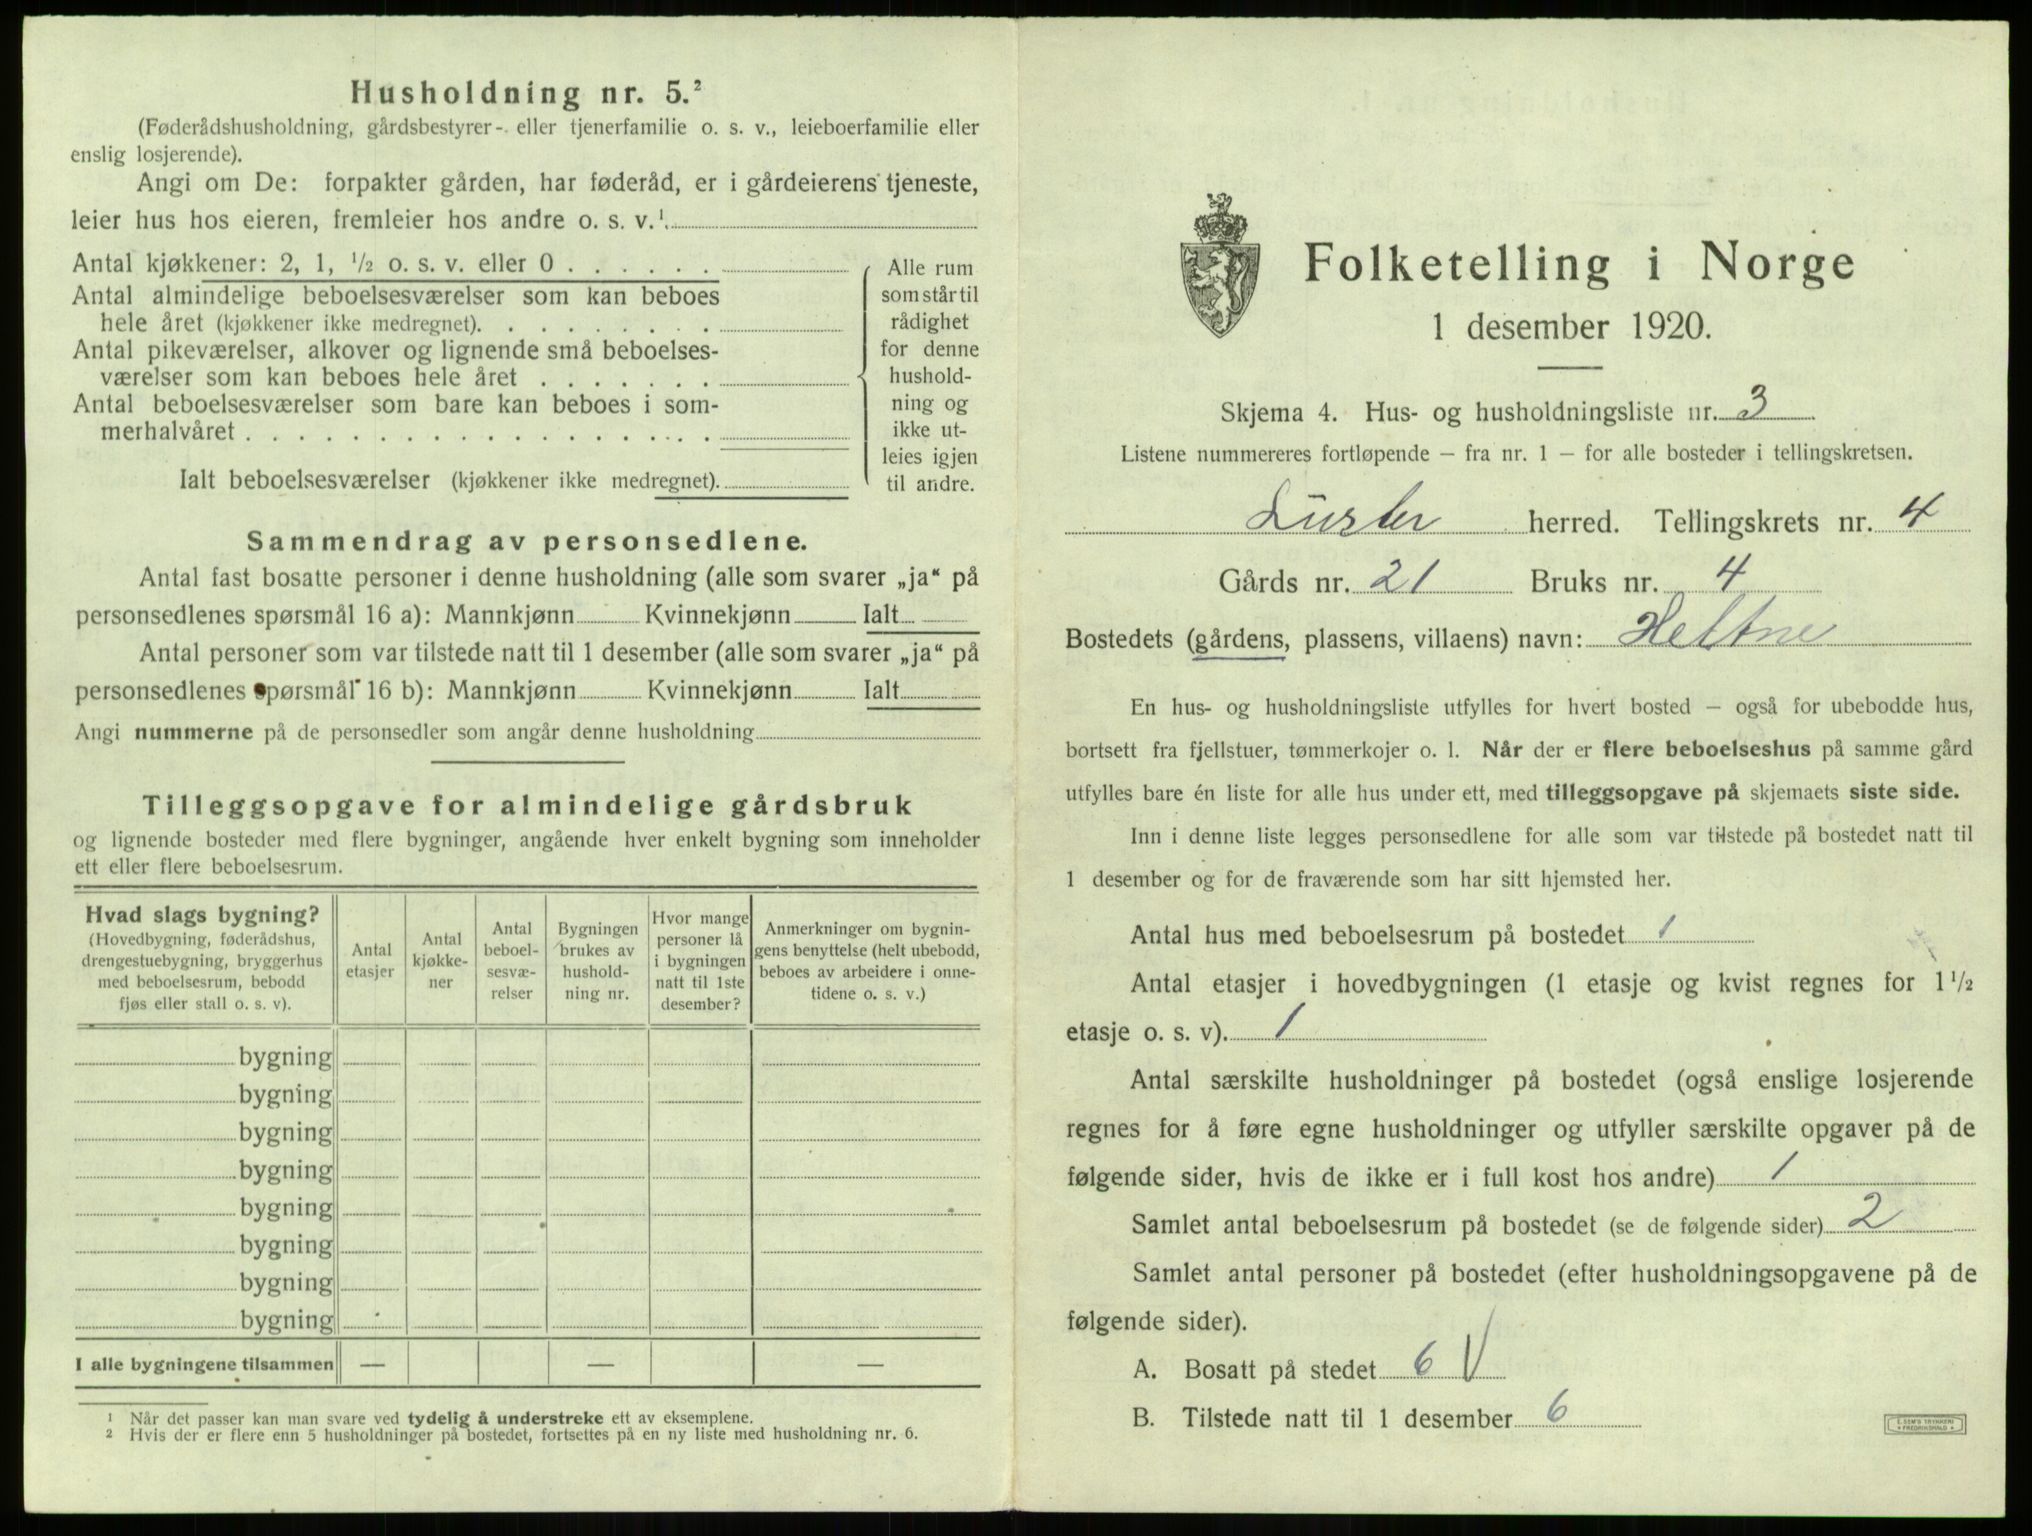 Husholdning nr. 5.²
(Føderådshusholdning, gårdsbestyrer- eller tjenerfamilie o. s. v., leieboerfamilie eller
enslig losjerende).
Angi om De: forpakter gården, har føderåd, er i gårdeierens tjeneste,
leier hus hos eieren, fremleier hos andre o. s. v.¹
Antal kjøkkener: 2, 1, ½ o. s. v. eller 0 . . . . . .
Antal almindelige beboelsesværelser som kan beboes
hele året (kjøkkener ikke medregnet). . . . . . . . .
Antal pikeværelser, alkover og lignende små beboelses-
værelser som kan beboes hele året . . . . . . .
Antal beboelsesværelser som bare kan beboes i som-
merhalvåret . . . . . . . . . . . . . . . . . .
Ialt beboelsesværelser (kjøkkener ikke medregnet).
Alle rum
som står til
rådighet
for denne
hushold-
ning og
ikke ut-
leies igjen
til andre.
Sammendrag av personsedlene.
Antal fast bosatte personer i denne husholdning (alle som svarer „ja“ på
personsedlenes spørsmål 16 a): Mannkjønn Kvinnekjønn Ialt
Antal personer som var tilstede natt til 1 desember (alle som svarer „ja“ på
personsedlenes spørsmål 16 b): Mannkjønn Kvinnekjønn Ialt
Angi nummerne på de personsedler som angår denne husholdning
Tilleggsopgave for almindelige gårdsbruk
og lignende bosteder med flere bygninger, angående hver enkelt bygning som inneholder
ett eller flere beboelsesrum.
Hvad slags bygning?
(Hovedbygning, føderådshus,
drengestuebygning, bryggerhus
med beboelsesrum, bebodd
fjøs eller stall o. s. v).
Antal
etasjer
Antal
kjøkke-
ner
Antal
beboel-
sesvæ-
relser
Bygningen
brukes av
hushold-
ning nr.
Hvor mange
personer lå
i bygningen
natt til 1ste
desember?
Anmerkninger om bygnin-
gens benyttelse (helt ubebodd,
beboes av arbeidere i onne-
tidene o. s. v.)
bygning
bygning
bygning
bygning
bygning
bygning
bygning
bygning
I alle bygningene tilsammen — — —
¹ Når det passer kan man svare ved tydelig å understreke ett av eksemplene.
² Hvis der er flere enn 5 husholdninger på bostedet, fortsettes på en ny liste med husholdning nr. 6.
Folketelling i Norge
1 desember 1920.
Skjema 4. Hus- og husholdningsliste nr. 3
Listene nummereres fortløpende – fra nr. 1 – for alle bosteder i tellingskretsen.
Luster herred. Tellingskrets nr. 4
Gårds nr. 21 Bruks nr. 4
Bostedets (gårdens, plassens, villaens) navn: Heltne
En hus- og husholdningsliste utfylles for hvert bosted – også for ubebodde hus,
bortsett fra fjellstuer, tømmerkojer o. l. Når der er flere beboelseshus på samme gård
utfylles bare én liste for alle hus under ett, med tilleggsopgave på skjemaets siste side.
Inn i denne liste legges personsedlene for alle som var tilstede på bostedet natt til
1 desember og for de fraværende som har sitt hjemsted her.
Antal hus med beboelsesrum på bostedet 1
Antal etasjer i hovedbygningen (1 etasje og kvist regnes for 1½
etasje o. s. v). 1
Antal særskilte husholdninger på bostedet (også enslige losjerende
regnes for å føre egne husholdninger og utfyller særskilte opgaver på de
følgende sider, hvis de ikke er i full kost hos andre) 1
Samlet antal beboelsesrum på bostedet (se de følgende sider) 2
Samlet antal personer på bostedet (efter husholdningsopgavene på de
følgende sider).
A. Bosatt på stedet 6 V
B. Tilstede natt til 1 desember 6
E. SEM'S TRYKKERI
• FREDRIKSHALD •